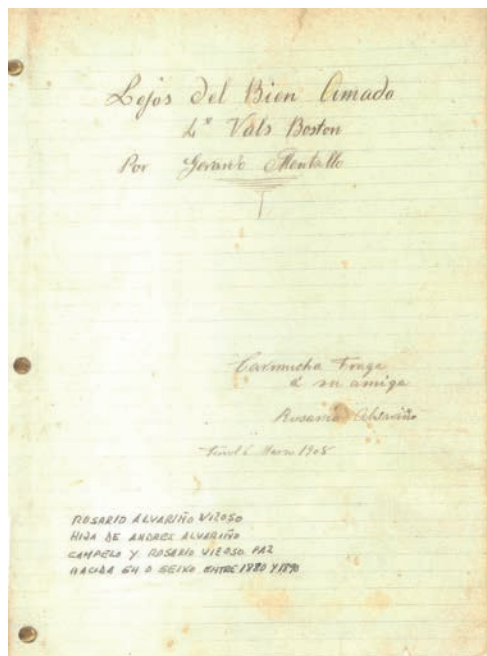 Lejos del Bien Amado
4º Vals Boston
Por
Carmucha Fraga
á su amiga
Rosario Alvariño
1905
ROSARIO ALVARIÑO VIZOSO
HIJA DE ANDRES ALVARIÑO
CAMPELO Y ROSARIO VIZOSO PAZ
NACIDA EN O SEIXO ENTRE 1880 Y 1890